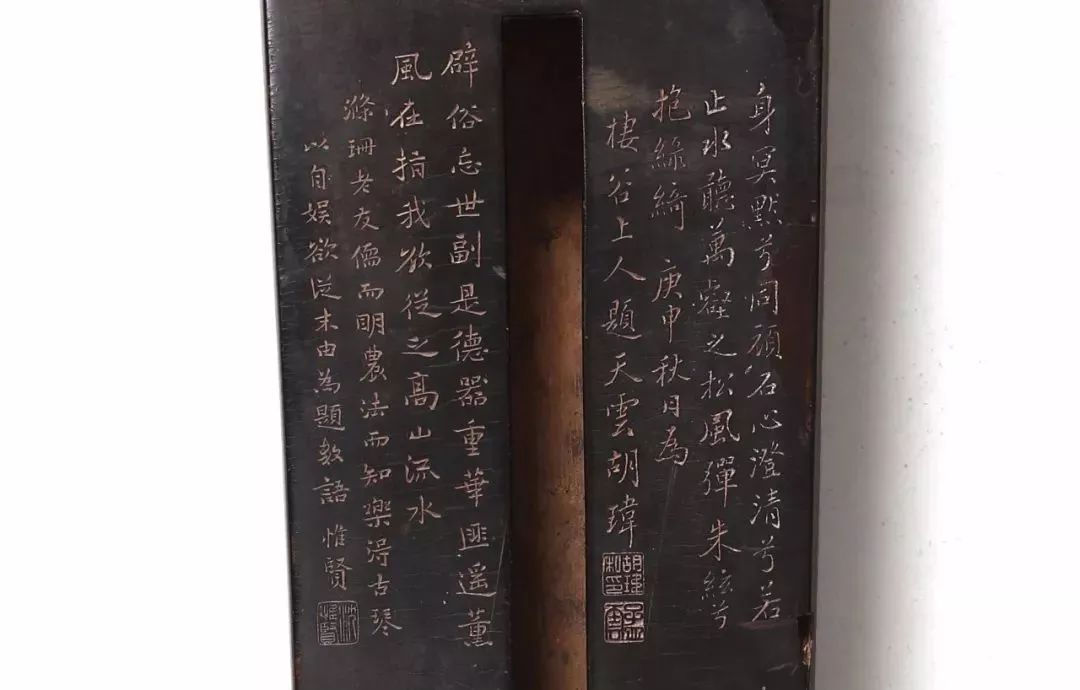 身冥默兮同頑石心澄清兮若
止水聽萬壑之松風彈朱絃兮
抱綠綺 庚申秋月為
棲谷上人題天雲胡瑋
胡瑋
私印
辟俗忘世副是德器重華匪遥薰
風在指我欲從之高山流水
滌珊老友儒而明農法而知樂得古琴
以自娱欲従末由為題数語 惟賢
沈
惟賢